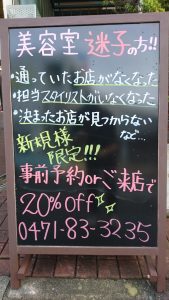 美容室 迷子の方!!
・通っていたお店がなくなった
・担当スタイリストがいなくなった
・決まったお店が見つからない
など…
新規様
限定!!!
事前予約orご来店で
20%off
0471-83-3235